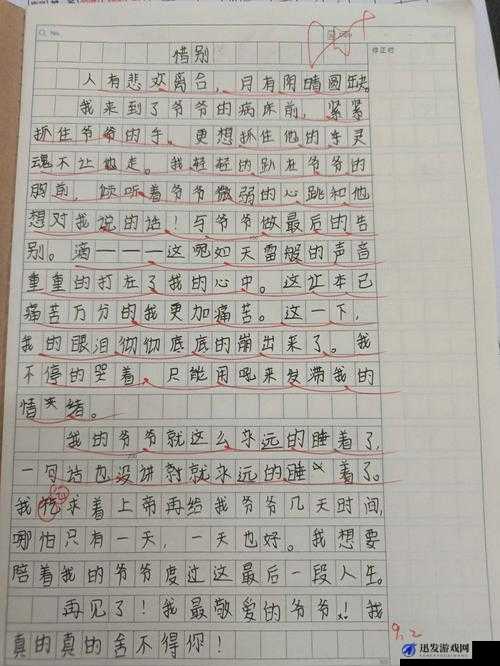 惜别
人有悲欢离合，月有阴晴圆缺。
我来到了爷爷的病床前，紧紧
抓住爷爷的手。更想抓住他的手灵
魂不让他走。我轻轻的趴在爷爷的
胸前，倾听着爷爷微弱的心跳和他
想对我说的话！与爷爷做最后的告
别。滴———这呢如天雷般的声音
重重的打在了我的心中。这让本已
痛苦万分的我更加痛苦。这一下，
我的眼泪彻彻底底的崩出来了。我
不停的哭着，只能用吼来发滞我的
情绪。
我的爷爷就这么永远的睡着了，
一句话也没讲就永远的睡着了。
我求着上帝再给我爷爷几天时间，
哪怕只有一天，一天也好。我想要
陪着我的爷爷度过这最后一段人生。
再见了！我最敬爱的爷爷！我
真的真的舍不得你！
9.2
迅发游戏网